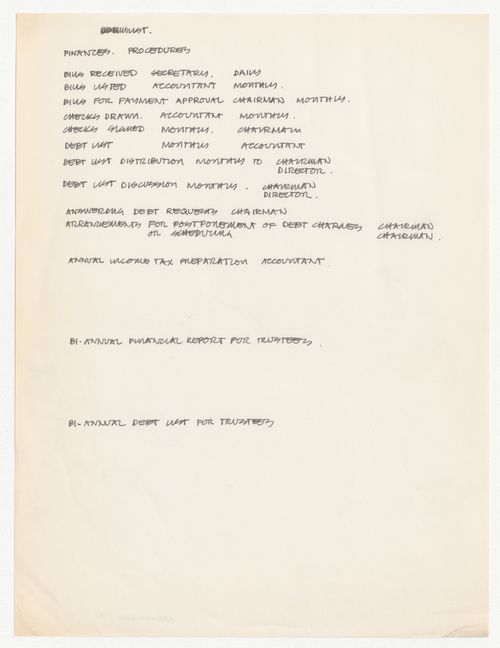 LIST.
FINANCES. PROCEDURES
BILLS RECEIVED SECRETARY. DAILY
BILLS LISTED ACCOUNTANT MONTHLY.
BILLS FOR PAYMENT APPROVAL CHAIRMAN MONTHLY.
CHECKS DRAWN. ACCOUNTANT MONTHLY.
CHECKS SIGNED MONTHLY. CHAIRMAN
DEBT LIST MONTHLY ACCOUNTANT
DEBT LIST DISTRIBUTION MONTHLY TO CHAIRMAN
DIRECTOR.
DEBT LIST DISCUSSION MONTHLY. CHAIRMAN
DIRECTOR.
ANSWERING DEBT REQUESTS CHAIRMAN
ARRANGEMENTS FOR POSTPONEMENT OF DEBT CHARGES CHAIRMAN
OR SCHEDULING CHAIRMAN.
ANNUAL INCOME TAX PREPARATION ACCOUNTANT
BI-ANNUAL FINANCIAL REPORT FOR TRUSTEES.
BI-ANNUAL DEBT LIST FOR TRUSTEES